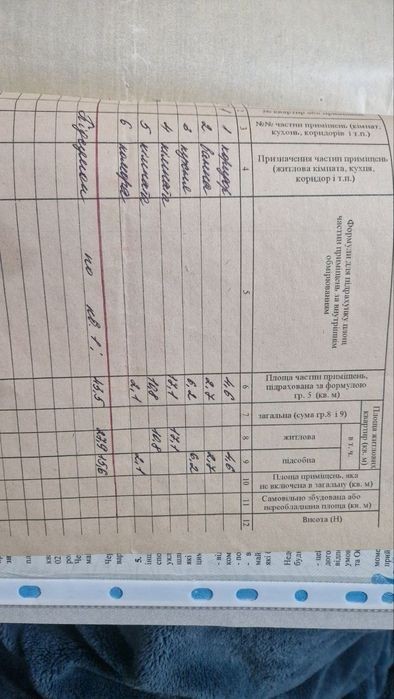 №№ частин приміщень (кімнат, кухонь, коридорів і т.п.)
Призначення частин приміщень (житлова кімната, кухня, коридор і т.п.)
Формули для підрахунку площ частин приміщень за внутрішнім обмірюванням
Площа частин приміщень, підрахована за формулою гр. 5 (кв. м)
Площа житлової квартири (кв. м)
загальна (сума гр.8 і 9)
в т. ч.
житлова
підсобна
Площа приміщень, яка не включена в загальну (кв. м)
Самовільно збудована або переобладнана площа (кв. м)
Висота (Н)
3 4 5 6 7 8 9 10 11 12
1 1 коридор 4,6 4,6
2 ванна 2,7 2,7
3 кухня 6,2 6,2
4 кімната 17,1 17,1
5 кімната 10,8 10,8
6 комора 2,1 2,1
по кв 1: 43,5 27,9 15,6